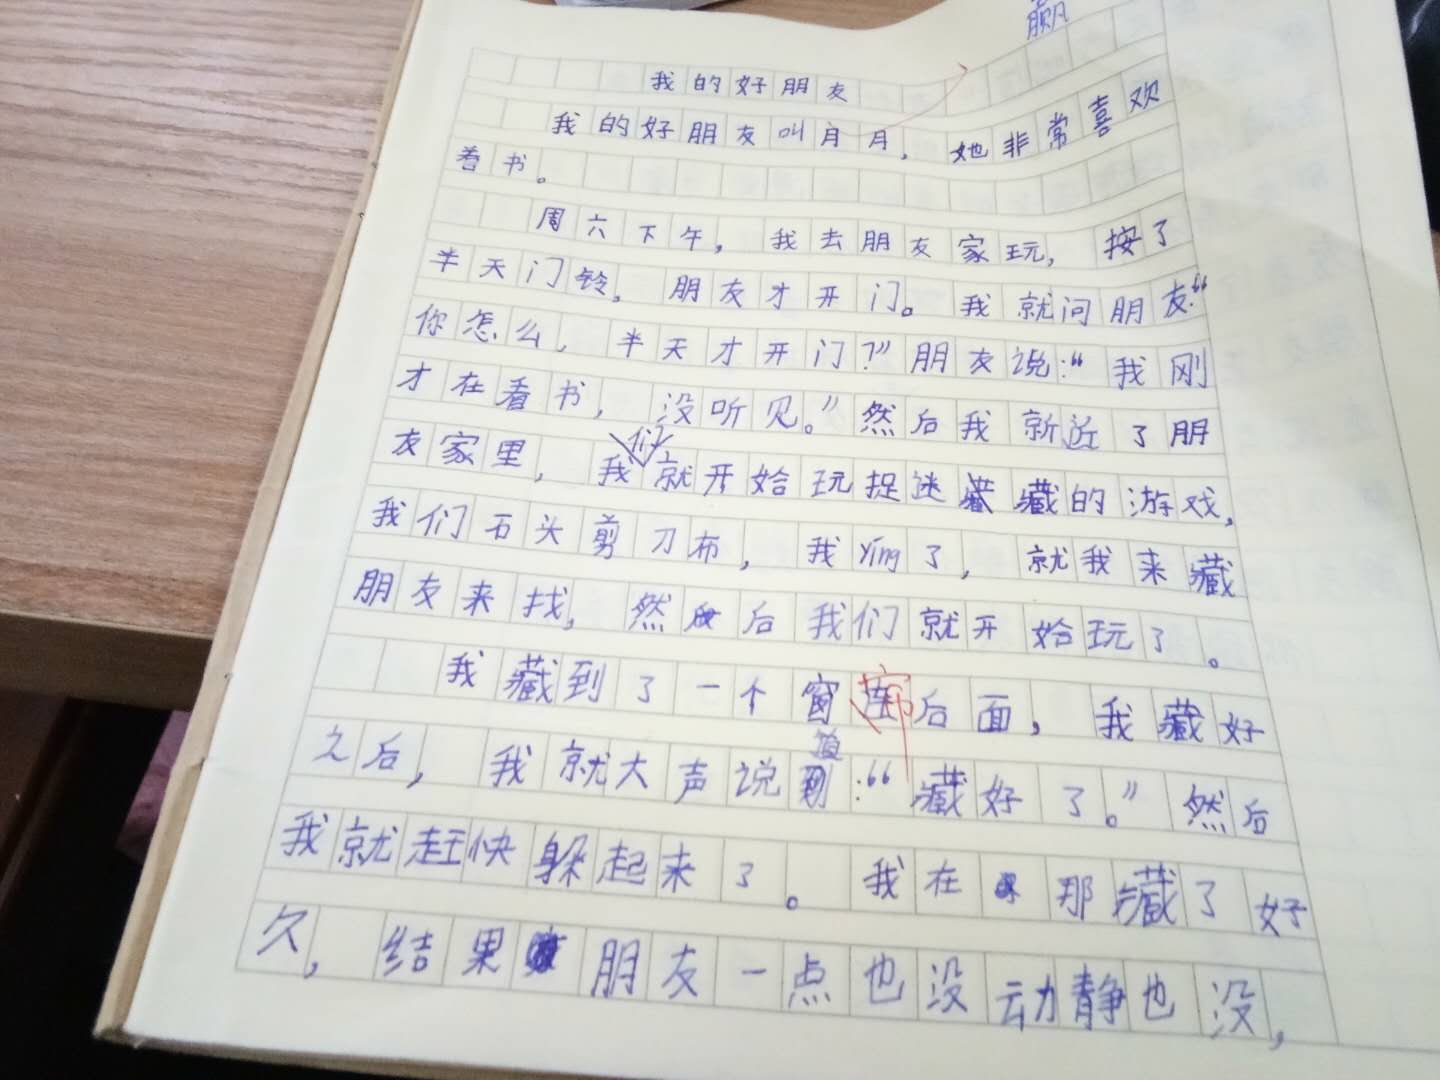 赢
我的好朋友
我的好朋友叫月月，她非常喜欢
看书。
周六下午，我去朋友家玩，按了
半天门铃。朋友才开门。我就问朋友：“
你怎么，半天才开门？”朋友说：“我刚
才在看书，没听见。”然后我就近了朋
友家里，我们就开始玩捉迷藏的游戏，
我们石头剪刀布，我yíng了，就我来藏
朋友来找，然后我们就开始玩了。
我藏到了一个窗帘后面，我藏好
之后，我就大声说道：“藏好了。”然后
我就赶快躲起来了。我在那藏了好
久，结果朋友一点也没动静也没，